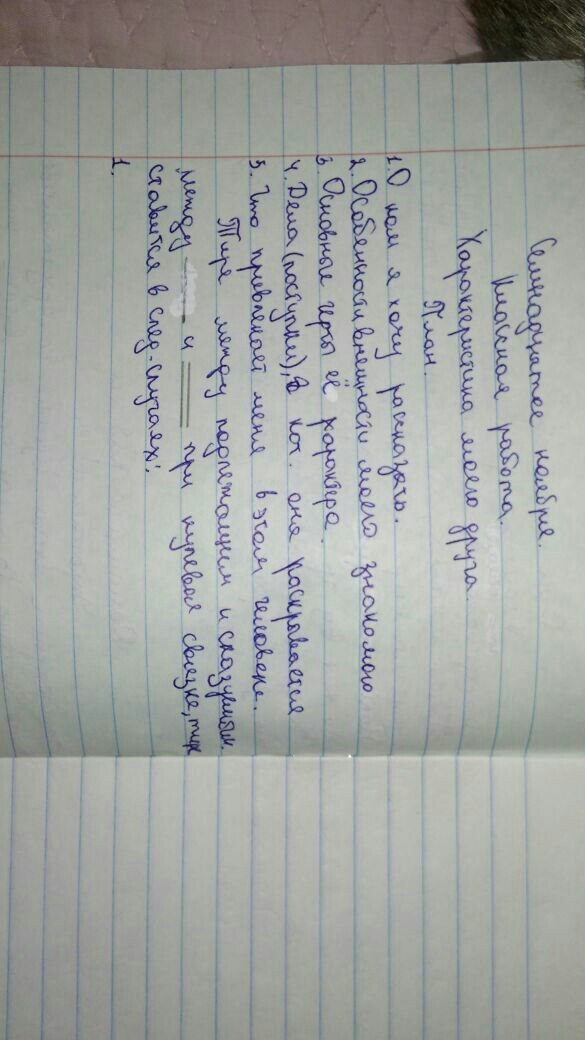 Семнадцатое ноября.
Классная работа.
Характеристика моего друга.
План.
1. О ком я хочу рассказать.
2. Особенности внешности моего знакомого
3. Основные черты её характера.
4. Дела (поступки), в кот. она раскрывается
5. Что привлекает меня в этом человеке.
Тире между подлежащим и сказуемым.
между и при нулевой связке, тире
ставится в след. случаях:
1.